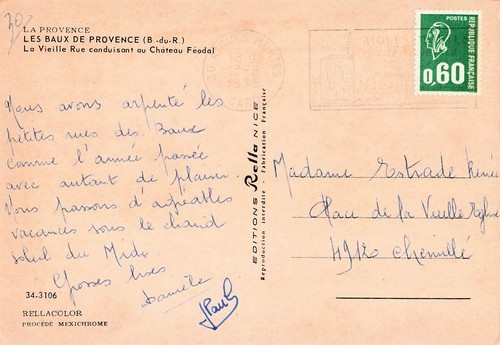 30
LA PROVENCE
LES BAUX DE PROVENCE (B.-du-R.)
La Vieille Rue conduisant au Château Féodal
Nous avons arpenté les
petites rues des Baux
comme l'année passée
avec autant de plaisir.
Vous passons d'agréables
vacances sous le chaud
soleil du Midi
Grosses bises
Danièle
Paul
34-3106
RELLACOLOR
PROCÉDÉ MEXICHROME
EDITIONS Rella NICE
Reproduction interdite - Fabrication Française
POSTES
0,60
REPUBLIQUE FRANÇAISE
Madame Estrade Renée
Place de la Vieille Eglise
49120 Chemillé